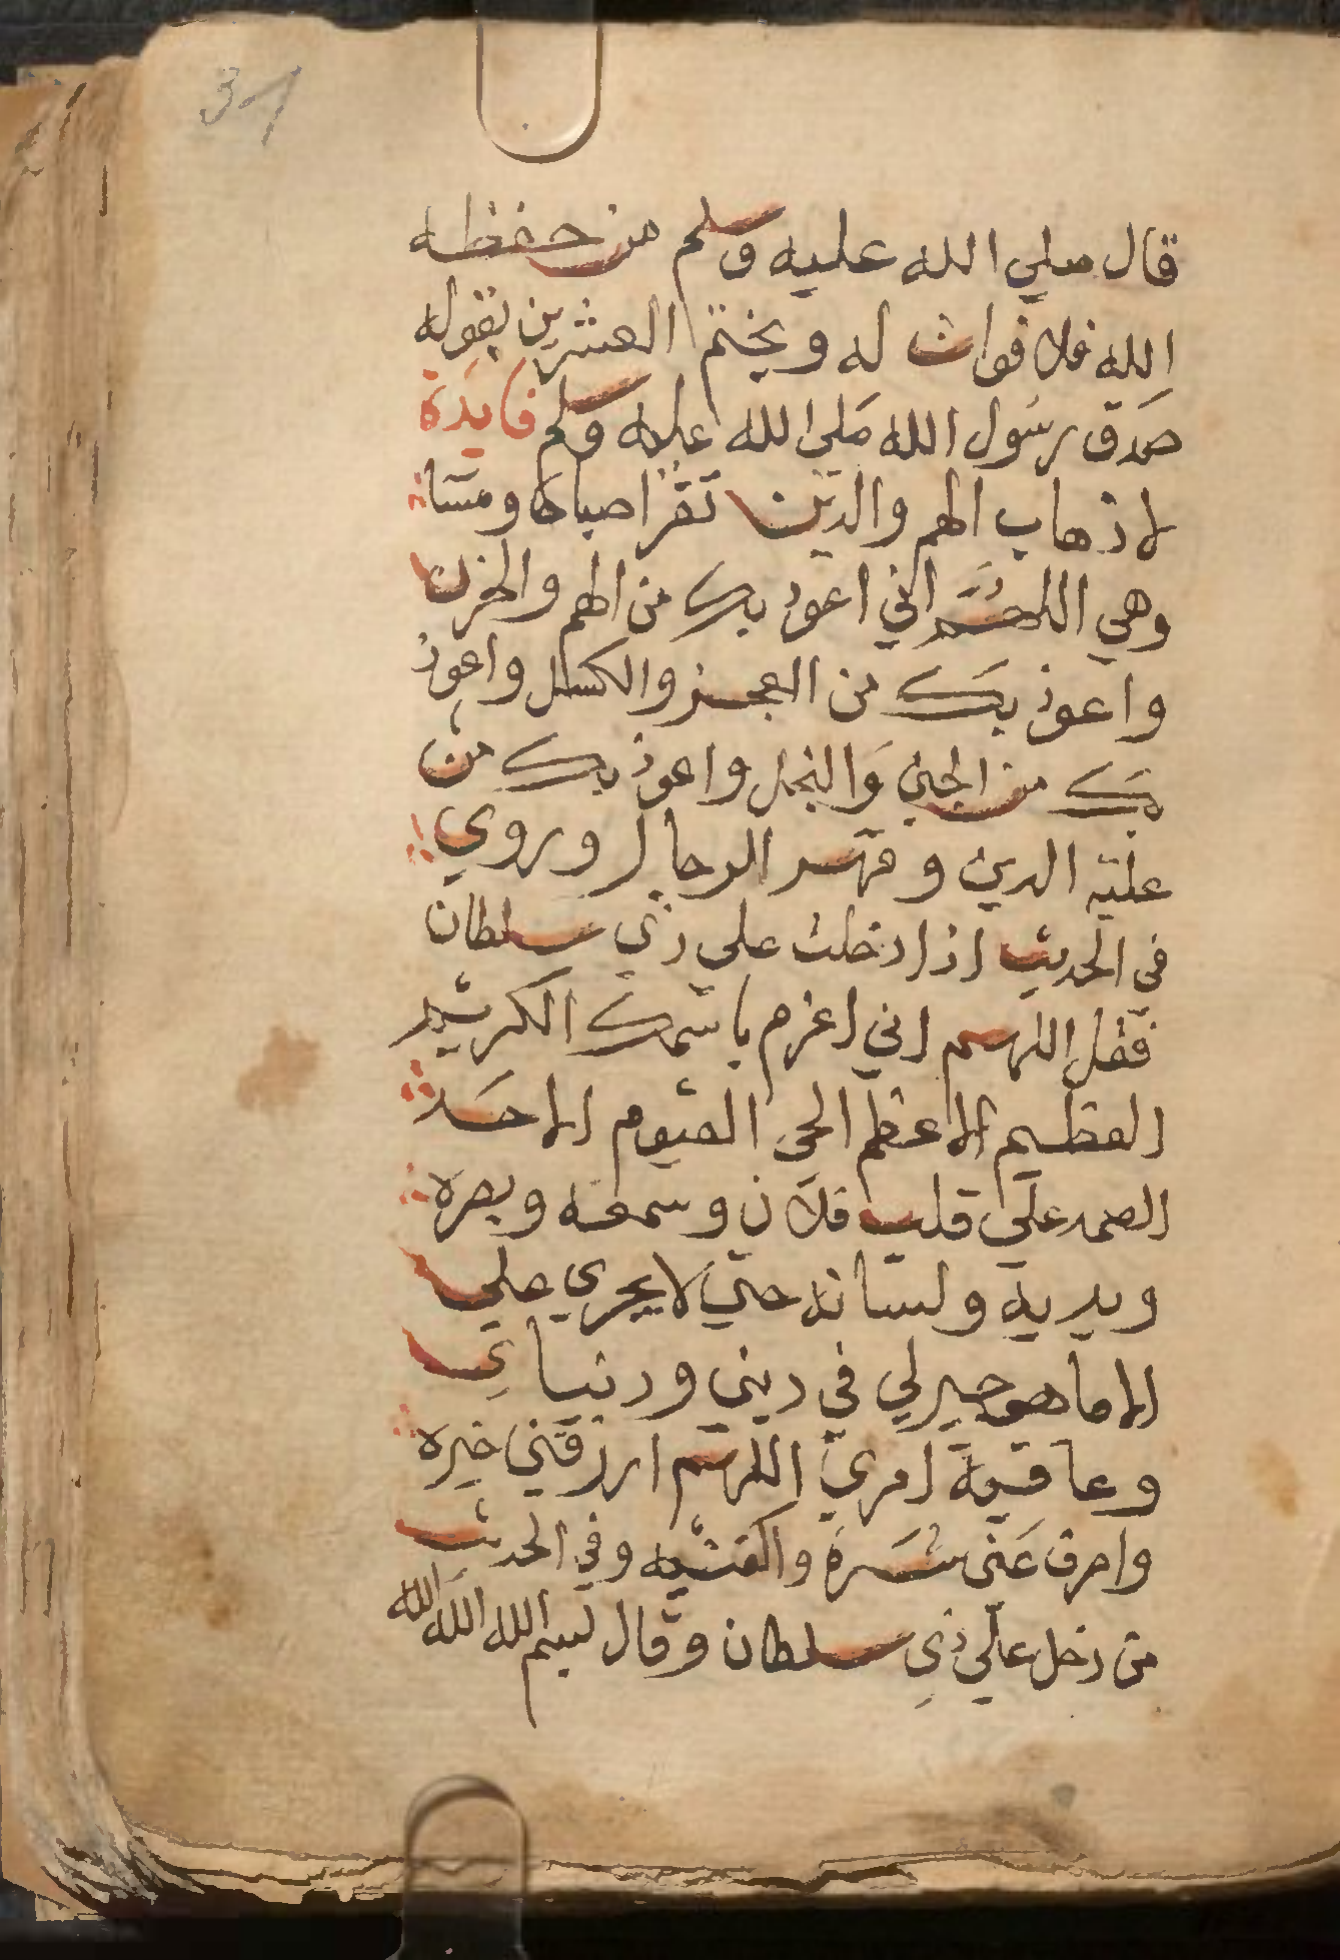 31
قال صلي الله عليه وسلم من حفظه
الله فلا فوات له ويختم العشرين بقوله
صدق رسول الله صلى الله عليه وسلم فايدة
لاذهاب الهم والدين تقرا صباحا ومسا
وهي اللهم اني اعوذ بك من الهم والحزن
واعوذ بك من العجز والكسل واعوذ
بك من الجبن والبخل واعوذ بك من
غلبة الدين وقهر الرجال وروي
في الحديث اذا دخلت علي ذي سلطان
فقل اللهم اني اعزم باسمك الكريم
العظيم الاعظم الحي القيوم الاحد
الصمد على قلب فلان وسمعه وبصره
ويديه ولسانه حتي لا يجري علي
الا ما هو خير لي في ديني ودنياي
وعاقبة امري اللهم ارزقني خيره
واصرف عني شره واكفنيه وفي الحديث
من دخل علي ذي سلطان وقال بسم الله الله الله